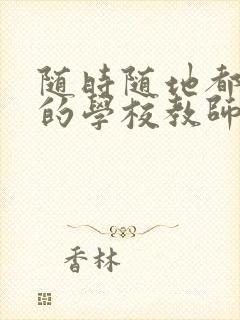 随時随地都
的學校教師
香林